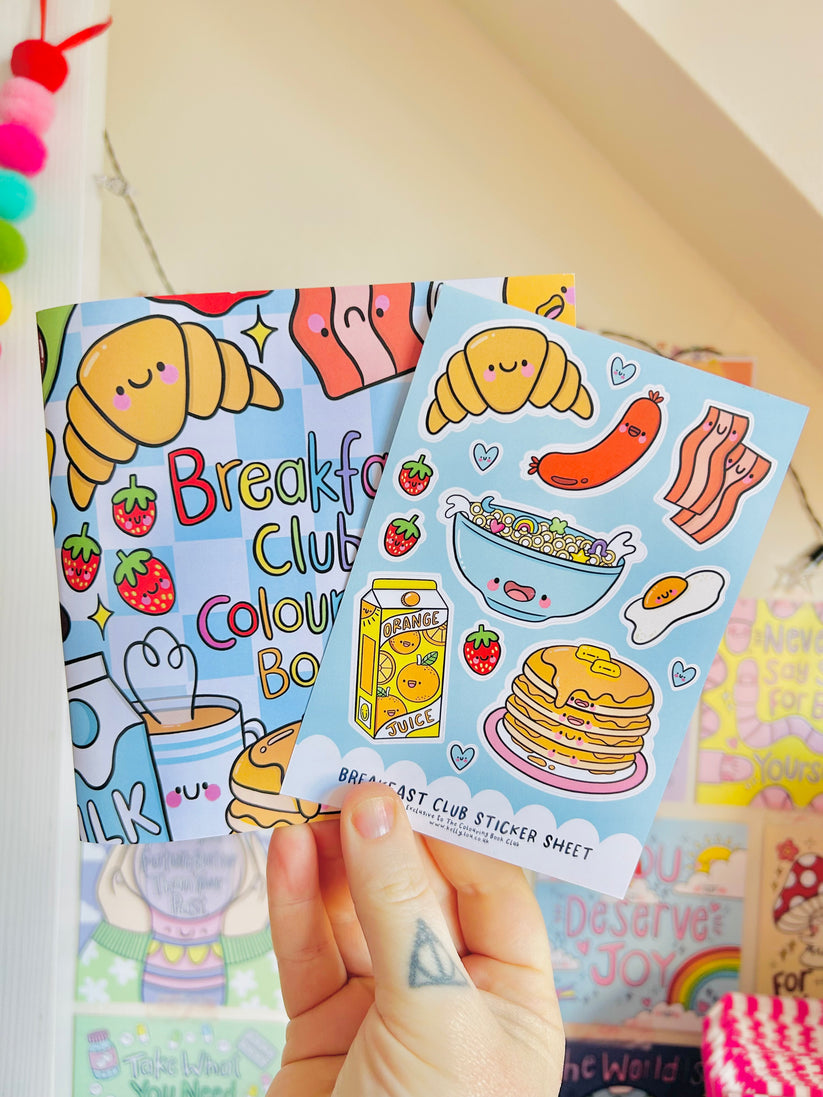 Breakfa
Club
Colour
Bo
LK
ORANGE
JUICE
BREAKFAST CLUB STICKER SHEET
Exclusive to The Colouring Book Club
www.kellylou.co.uk
Never
Say S
For B
Yours
YOU
Deserve
JOY
FOR
Than Your
Past
Take What
You Need
The World is